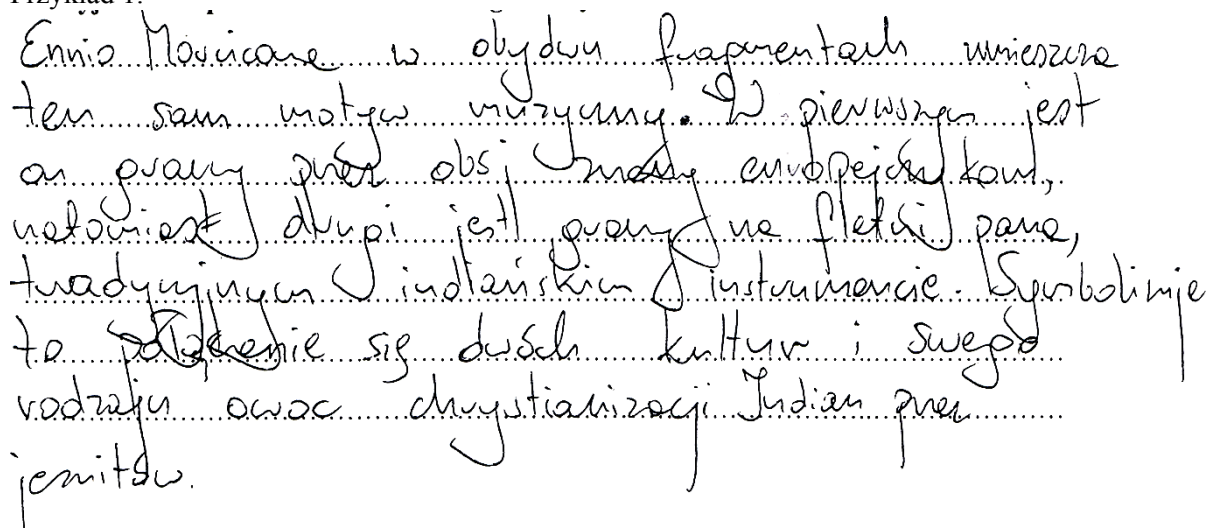 Przykład 1.
Ennio Morricone w obydwu fragmentach umieszcza
ten sam motyw muzyczny. W pierwszym jest
on grany przez obój znany europejczykom,
natomiast drugi jest grany na fletni pana,
tradycyjnym indiańskim instrumencie. Symbolizuje
to połączenie się dwóch kultur i swego
rodzaju owoc chrystianizacji Indian przez
jezuitów.